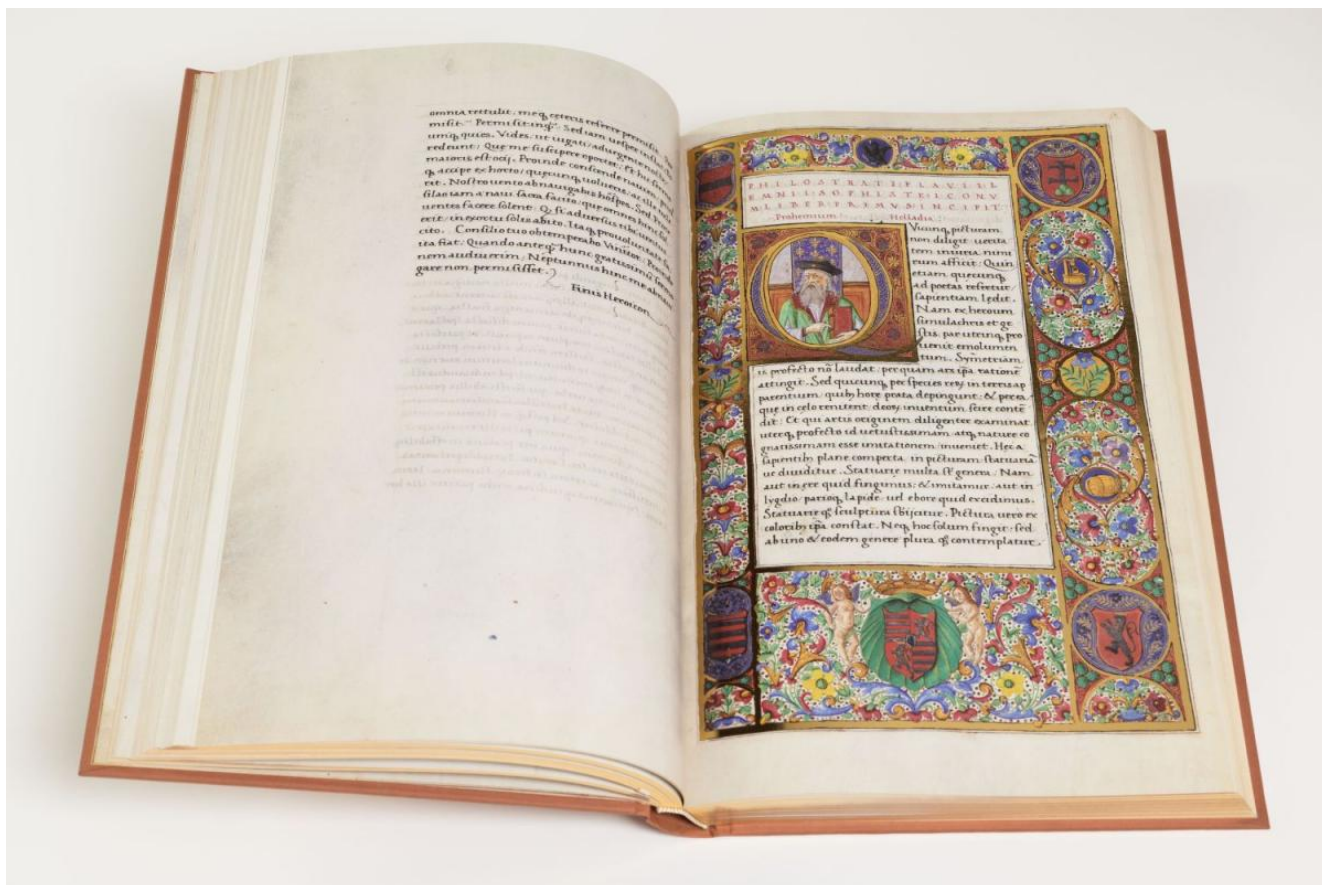 omnia rettulit. me q; ceteris referre
misit. Permisit inq;. Sed iam uespere
umq; quies. Vides ut uagati
redeunt: Que me suscipere oportet. Et
maioris est ocij. Proinde conscende nauem
q; accipe ex horto, quecunq; uolueris
rit. Nostro uento ab nauigabis hospes. Sed
silao iam a naui sacra facito: que omnes hinc
uentes facere solent. Q si aduersus tibi uentus
erit, in exortu solis abito. Itaq; pro uoluntate
cito. Consilio tuo obtempero Vinitor.
ita fiat: Quando ante q; hunc gratissimum
nem audiuerim, Neptunnus hinc me
gare non permisisset.
Finis Heroicon
PHILOSTRATI FLAVII L
EMNII SOPHISTE ICONV
M LIBER PRIMVS INCIPIT
Prohemium Helladia
Vicunq; picturam
non diligit: uerita
tem iniuria, nimi
rum afficit: Quin
etiam quecunq;
ad poetas refertur
sapientiam ledit.
Nam ex heroum
simulachris et ge
stis par utrinq; pro
uenit emolumen
tum. Symetriam
is profecto nō laudat: per quam ars ipa rationē
attingit. Sed quicunq; per species rerꝝ in terris ap
parentium: quib; hore prata depingunt: & per ea
que in celo renitent: deorꝝ inuentum scire contē
dit: Et qui artis originem diligenter examinat
uterq; profecto id uetustissimam atq; nature co
gnatissimam esse imitationem inueniet. Hec a
sapientib; plane comperta, in picturam statuariā
ue diuiditur. Statuarie multa st̄ genera. Nam
aut in ere quid fingimus: & imitamur aut in
lygdio, parioq; lapide, uel ebore quid excidimus.
Statuarie q; sculptura sbijcitur. Pictura uero ex
colorib; ipa constat. Neq; hoc solum fingit: sed
ab uno & eodem genere plura q; contemplatur.